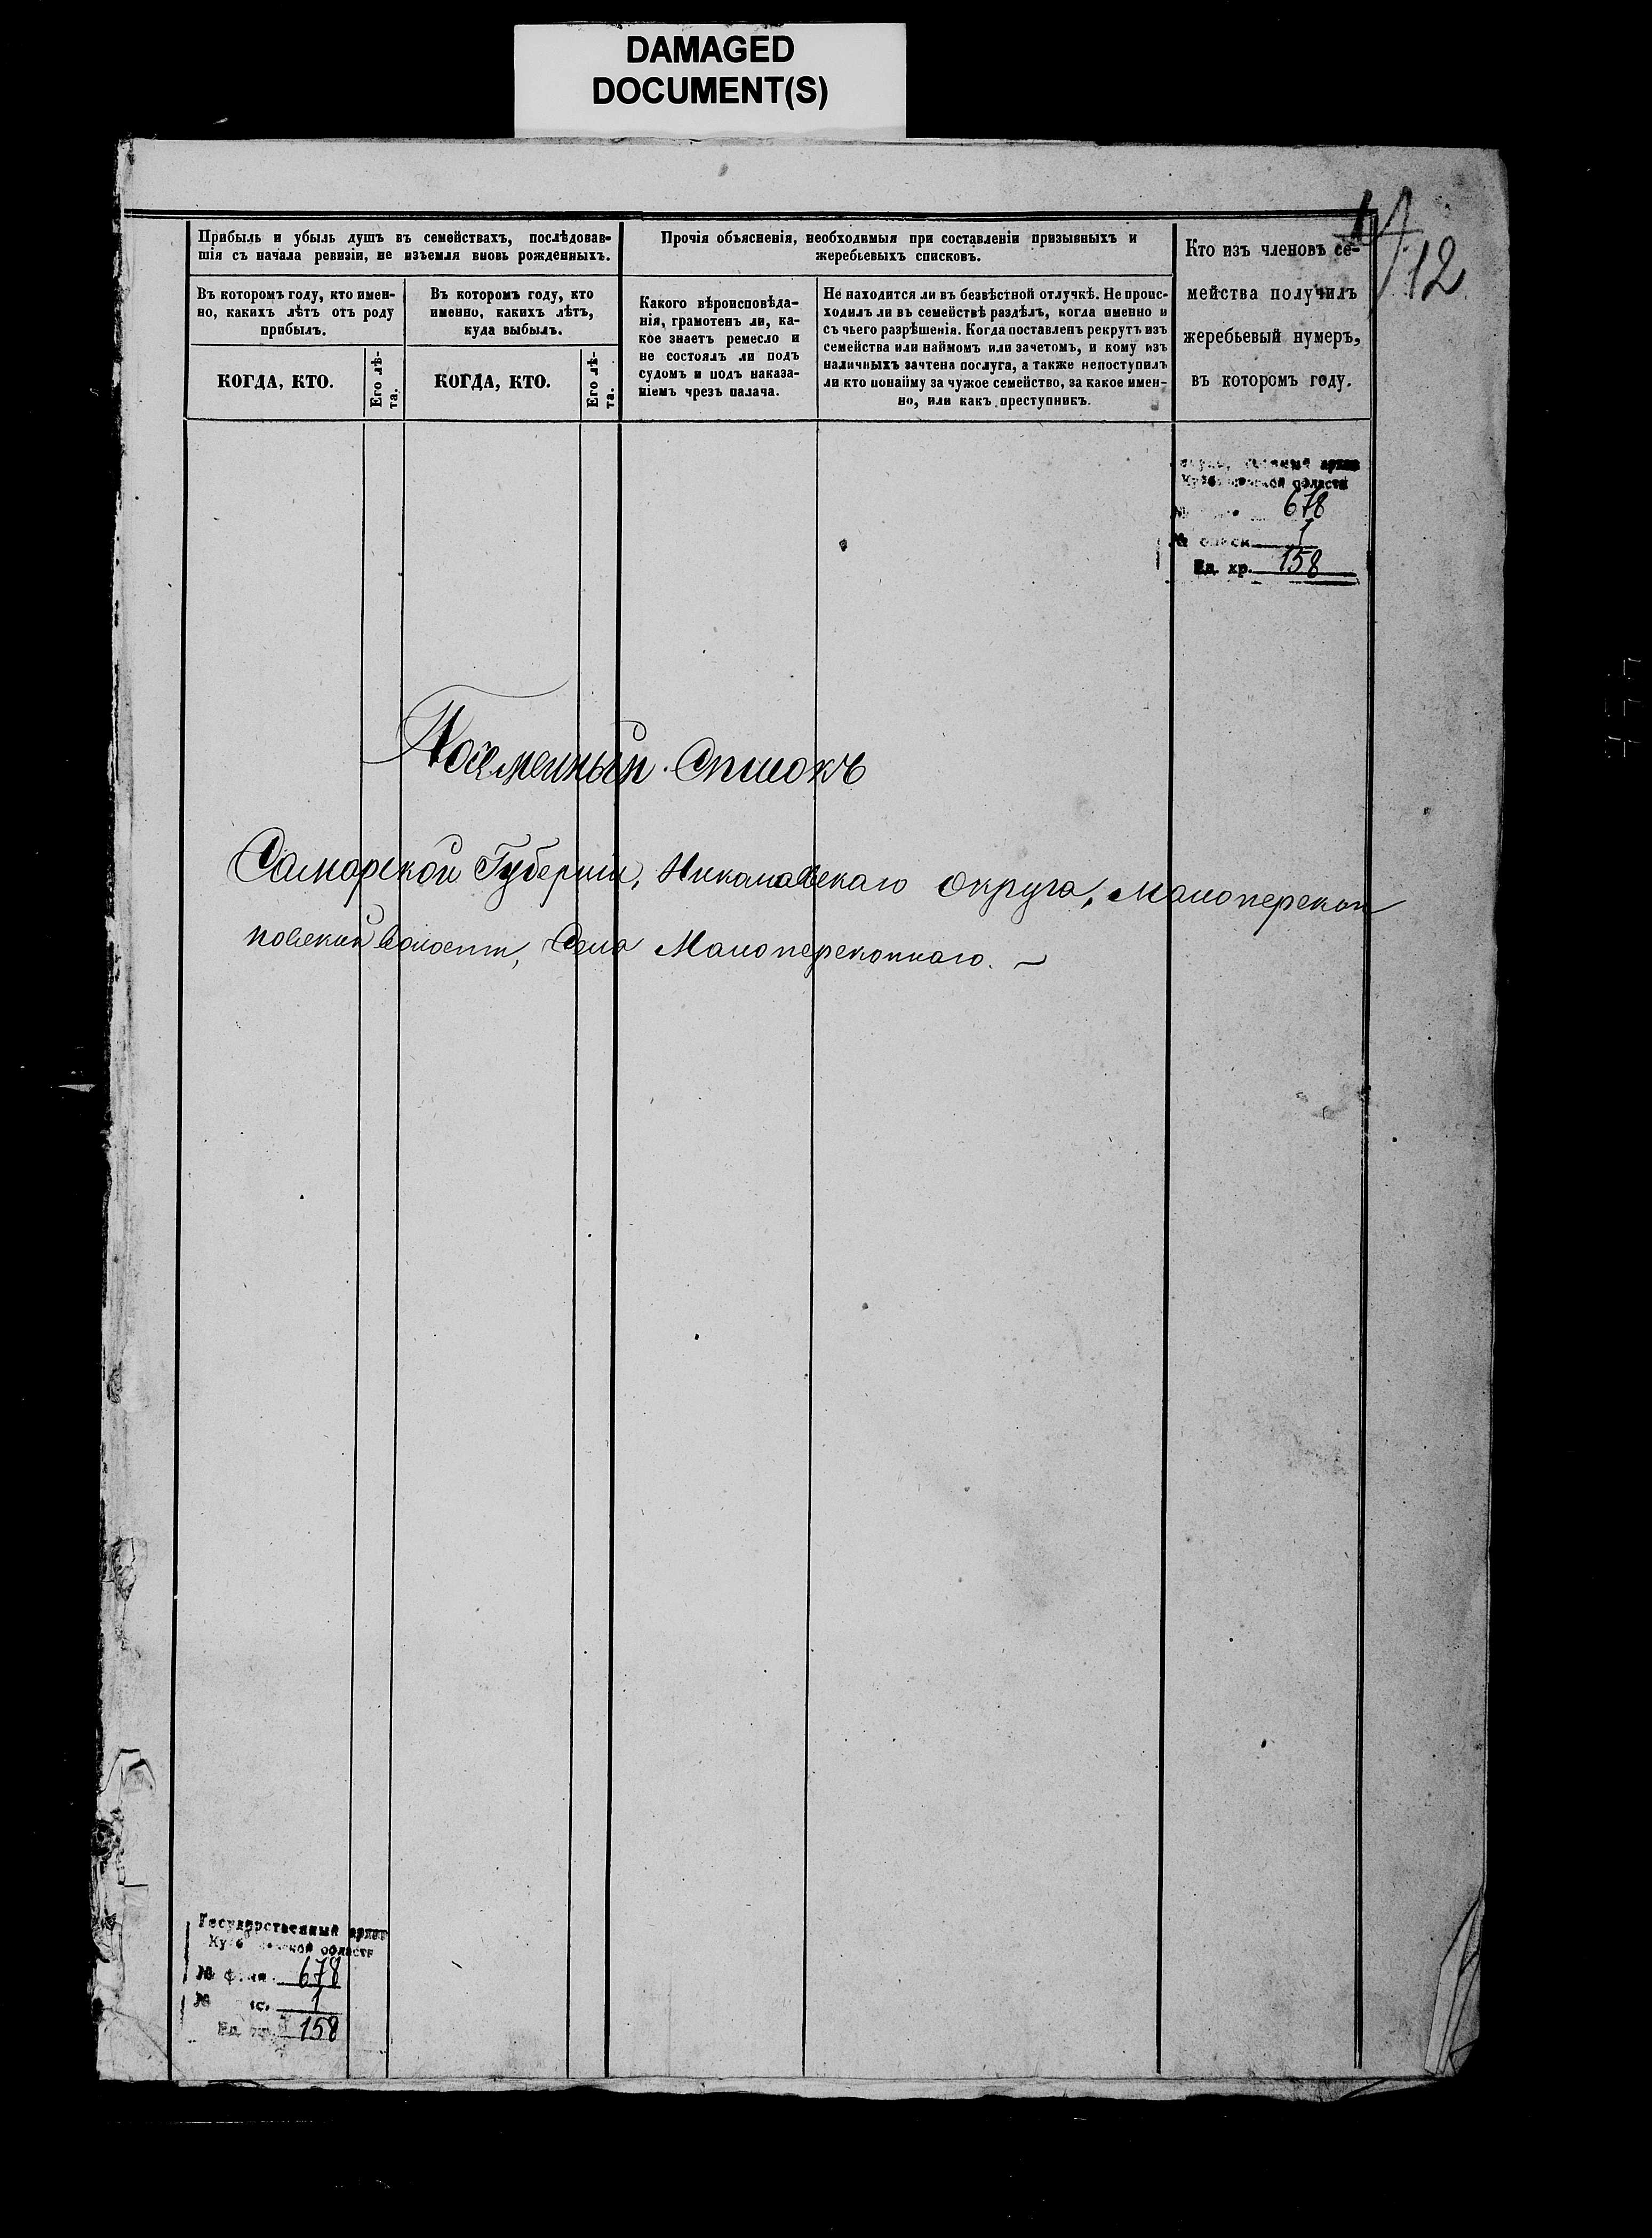 DAMAGED
DOCUMENT(S)
12
Прибыль и убыль душъ въ семействахъ, послѣдовав-
шія съ начала ревизіи, не изъемля вновь рожденныхъ.
Прочія объясненія, необходимыя при составленіи призывныхъ и
жеребьевыхъ списковъ.
Кто изъ членовъ се-
мейства получилъ
жеребьевый нумеръ,
въ которомъ году.
Въ которомъ году, кто имен-
но, какихъ лѣтъ отъ роду
прибылъ.
Въ которомъ году, кто
именно, какихъ лѣтъ,
куда выбылъ.
Какого вѣроисповѣда-
нія, грамотенъ ли, ка-
кое знаетъ ремесло и
не состоялъ ли подъ
судомъ и подъ наказа-
ніемъ чрезъ палача.
Не находится ли въ безвѣстной отлучкѣ. Не проис-
ходилъ ли въ семействѣ раздѣлъ, когда именно и
съ чьего разрѣшенія. Когда поставленъ рекрутъ изъ
семейства или наймомъ или зачетомъ, и кому изъ
наличныхъ зачтена послуга, а также непоступилъ
ли кто понайму за чужое семейство, за какое имен-
но, или какъ преступникъ.
КОГДА, КТО.
Его лѣ-
та.
КОГДА, КТО.
Его лѣ-
та.
архив
области
678
№ описи 1
Ед. хр. 158
Посемейный Списокъ
Самарской Губерніи, Николаевскаго округа, Малоперекоп
новской волости, Села Малоперекопнаго. ~
Государственный архив
области
№ фон. 678
№ 1
Ед. хр. 158